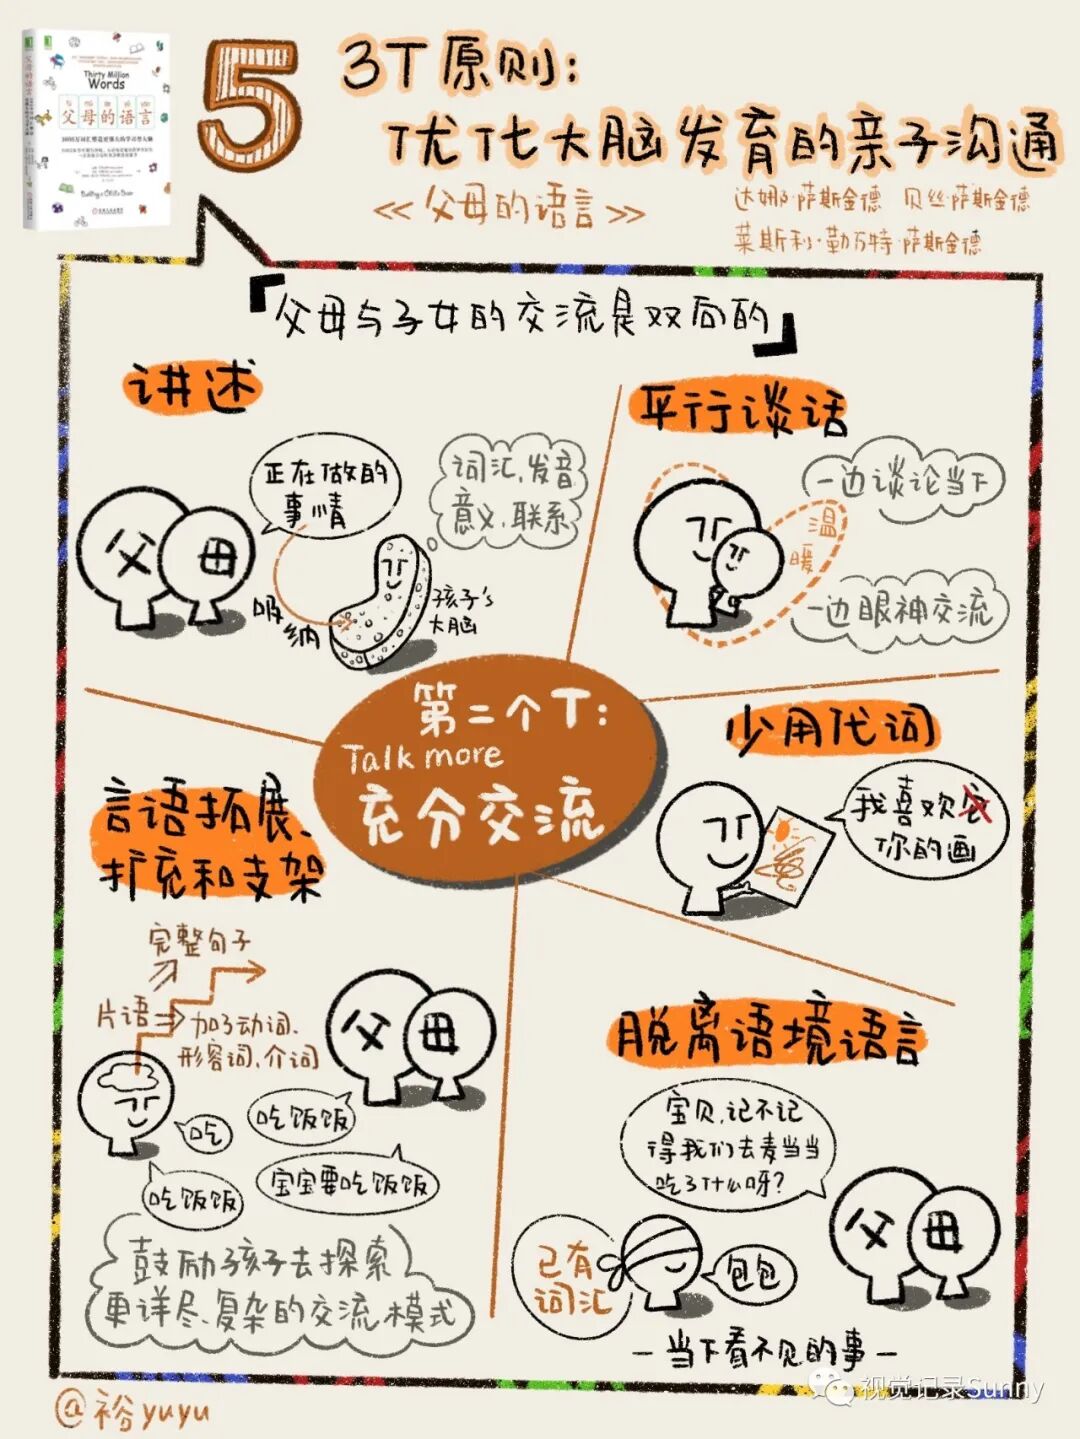 Thirty Million
Words
父母的语言
5
3T原则:
优化大脑发育的亲子沟通
《父母的语言》
达娜·萨斯金德 贝丝·萨斯金德
莱斯利·勒万特·萨斯金德
「父母与子女的交流是双向的」
讲述
正在做的
事情
词汇,发音
意义,联系
父
母
吸纳
孩子's
大脑
平行谈话
一边谈论当下
温暖
一边眼神交流
第二个T:
Talk more
充分交流
少用代词
我喜欢它
你的画
言语拓展、
扩充和支架
完整句子
片语
加了动词、
形容词、介词
父
母
吃
吃饭饭
吃饭饭
宝宝要吃饭饭
鼓励孩子去探索
更详尽、复杂的交流模式
脱离语境语言
宝贝,记不记
得我们去麦当当
吃了什么呀?
父
母
已有
词汇
包包
—当下看不见的事—
@裕yuyu
视觉记录Sunny